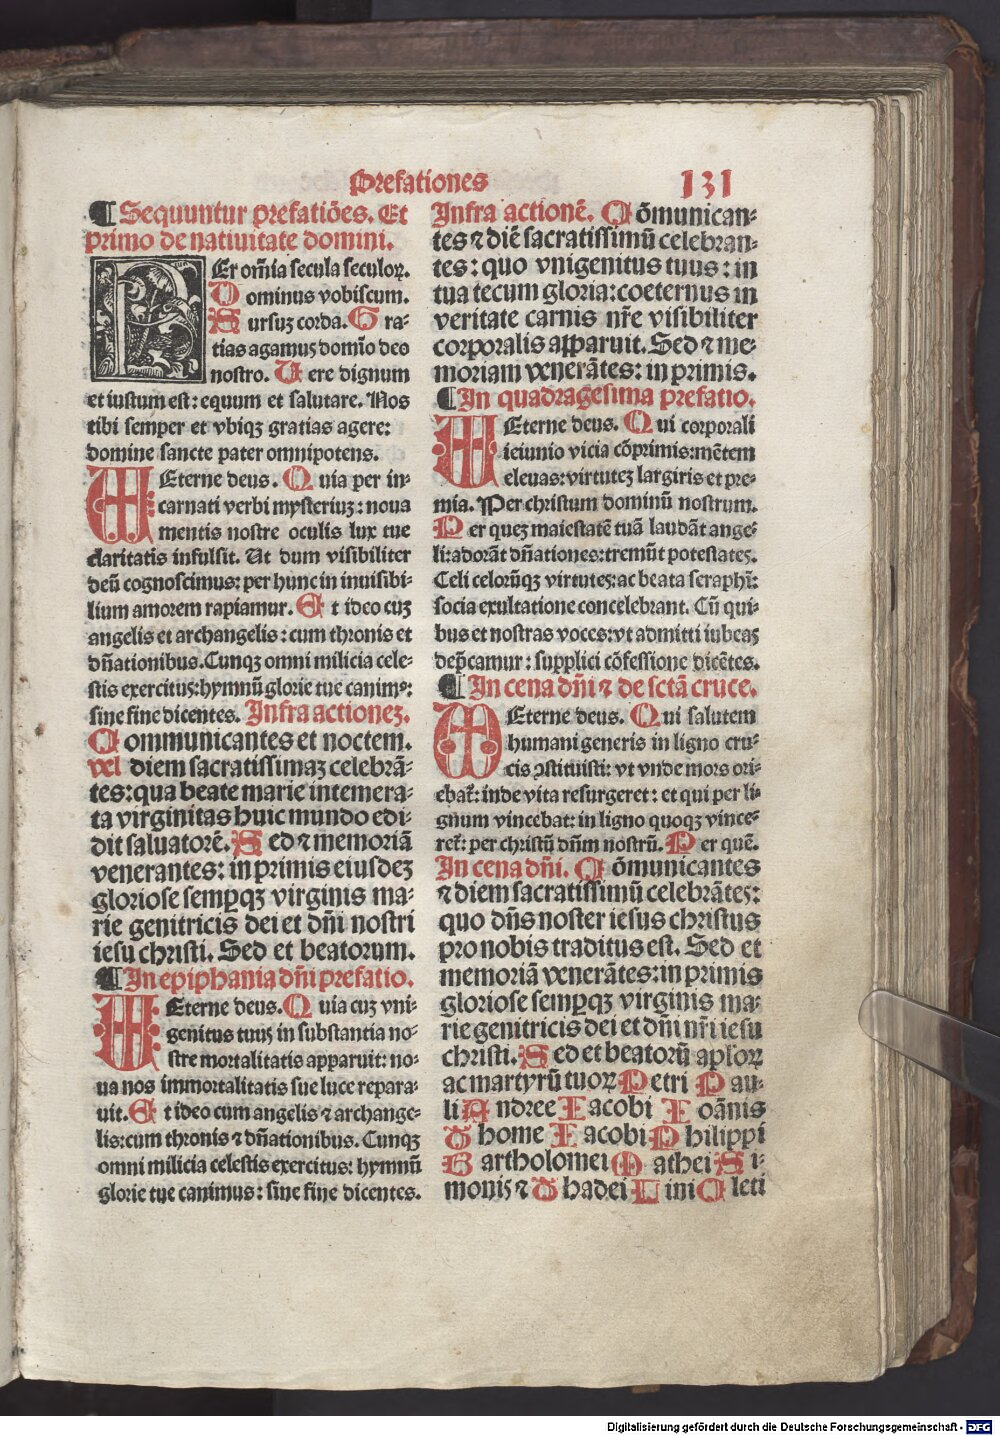 Prefationes
131
¶ Sequuntur prefatiōes. Et
primo de natiuitate domini.
PEr om̄ia secula seculoꝝ.
Dominus vobiscum.
Sursuꝫ corda. Gra-
tias agamuꝫ domīo deo
nostro. Uere dignum
et iustum est: equum et salutare. Nos
tibi semper et vbiqꝫ gratias agere:
domine sancte pater omnipotens.
Eterne deus. Quia per in-
carnati verbi mysteriuꝫ: noua
mentis nostre oculis lux tue
claritatis infulsit. Ut dum visibiliter
deū cognoscimus: per hunc in inuisibi-
lium amorem rapiamur. Et ideo cuꝫ
angelis et archangelis: cum thronis et
dn̄ationibus. Cunqꝫ omni milicia cele-
stis exercituꝫ: hymnū glorie tue canimꝰ:
sine fine dicentes. Infra actioneꝫ.
Communicantes et noctem.
vel diem sacratissimaꝫ celebrā-
tes: qua beate marie intemera-
ta virginitas huic mundo edi-
dit saluatorē. Sed ⁊ memoriā
venerantes: in primis eiusdeꝫ
gloriose semꝑqꝫ virginis ma-
rie genitricis dei et dn̄i nostri
iesu christi. Sed et beatorum.
¶ In epiphania dn̄i prefatio.
Eterne deus. Quia cuꝫ vni-
genitus tuuꝫ in substantia no-
stre mortalitatis apparuit: no-
ua nos immortalitatis sue luce repara-
uit. Et ideo cum angelis ⁊ archange-
lis: cum thronis ⁊ dn̄ationibus. Cunqꝫ
omni milicia celestis exercitus: hymnū
glorie tue canimus: sine fine dicentes.
Infra actionē. Cōmunican-
tes ⁊ diē sacratissimū celebran-
tes: quo vnigenitus tuus: in
tua tecum gloria: coeternus in
veritate carnis nr̄e visibiliter
corporalis apparuit. Sed ⁊ me-
moriam venerātes: in primis.
¶ In quadragesima prefatio.
Eterne deus. Qui corporali
ieiunio vicia cōprimis: mētem
eleuas: virtuteꝫ largiris et pre-
mia. Per christum dominū nostrum.
Per queꝫ maiestatē tuā laudāt ange-
li: adorāt dn̄ationes: tremūt potestateꝫ.
Celi celorūqꝫ virtuteꝫ: ac beata seraphī:
socia exultatione concelebrant. Cū qui-
bus et nostras voces: vt admitti iubeaꝫ
dep̄camur: supplici cōfessione dicētes.
¶ In cena dn̄i ⁊ de sctā cruce.
Eterne deus. Qui salutem
humani generis in ligno cru-
cis ꝯstituisti: vt vnde mors ori-
ebat᷑: inde vita resurgeret: et qui per li-
gnum vincebat: in ligno quoqꝫ vince-
ret᷑: per christū dn̄m nostrū. Per quē.
In cena dn̄i. Cōmunicantes
⁊ diem sacratissimū celebrāteꝫ:
quo dn̄s noster iesus christus
pro nobis traditus est. Sed et
memoriā venerātes: in primis
gloriose semꝑqꝫ virginis ma-
rie genitricis dei et dn̄i nr̄i iesu
christi. Sed et beatorū apl̄oꝝ
ac martyrū tuoꝝ Petri Pau-
li Andree Iacobi Ioānis
Thome Iacobi Philippi
Bartholomei Mathei Si-
moniꝫ ⁊ Thadei Lini Cleti
Digitalisierung gefördert durch die Deutsche Forschungsgemeinschaft - DFG